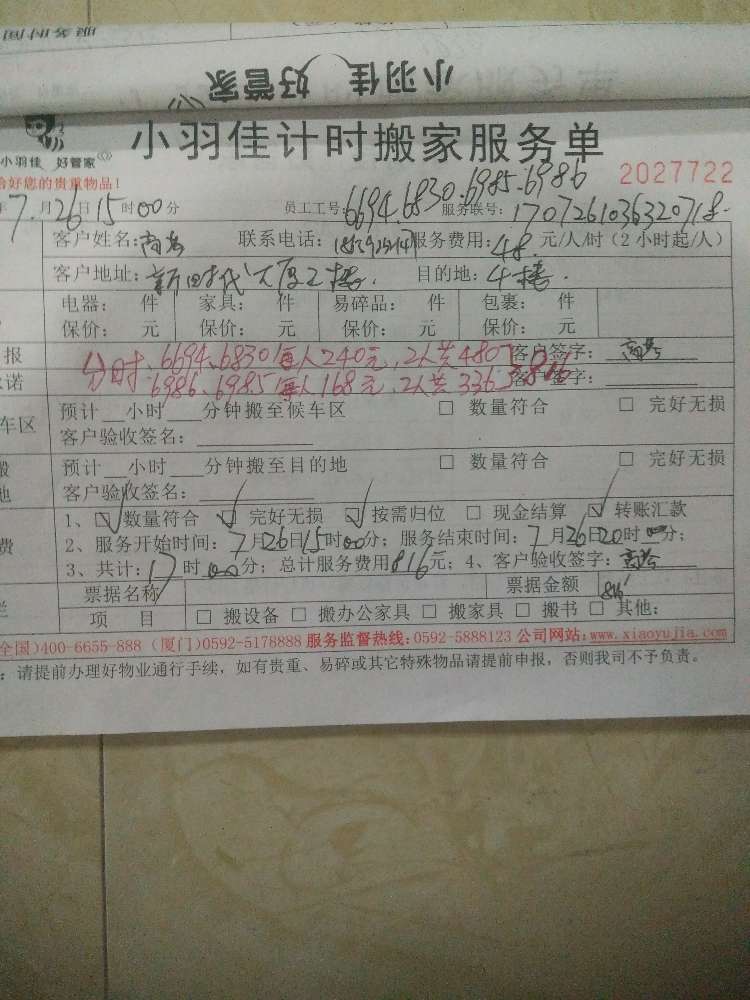 服务时间
小羽佳 好管家
小羽佳计时搬家服务单
小羽佳 好管家
2027722
好您的贵重物品!
7月26日15时00分 员工工号:6694.6830.6985.6986 服务联号:1707261036320718
客户姓名: 联系电话: 服务费用:48元/人/时(2小时起/人)
客户地址:新时代大厦2楼 目的地:4楼
电器: 件 家具: 件 易碎品: 件 包裹: 件
保价: 元 保价: 元 保价: 元 保价: 元
报 分时:6694、6830每人240元,2人共480 客户签字:
诺 6986、6985每人168元,2人共336 816 客户签字:
车区 预计__小时___分钟搬至候车区 □ 数量符合 □ 完好无损
客户验收签名:
预计__小时___分钟搬至目的地 □ 数量符合 □ 完好无损
地 客户验收签名:
1、☑数量符合 ☑完好无损 ☑按需归位 □ 现金结算 ☑转账汇款
费 2、服务开始时间:7月26日15时00分;服务结束时间:7月26日20时00分;
3、共计:17时00分;总计服务费用816元;4、客户验收签字:
票据名称 票据金额 816
项 目 □ 搬设备 □ 搬办公家具 □ 搬家具 □ 搬书 □ 其他:
全国)400-6655-888 (厦门)0592-5178888 服务监督热线:0592-5888123 公司网站:www.xiaoyujia.com
:请提前办理好物业通行手续,如有贵重、易碎或其它特殊物品请提前申报,否则我司不予负责。